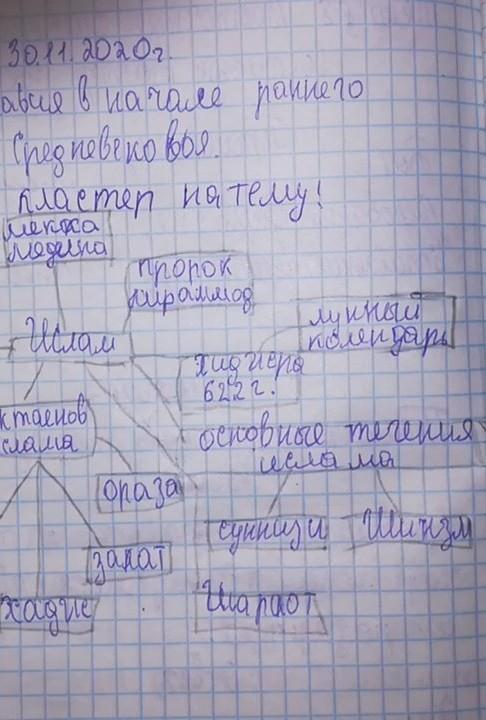 30.11.2020г.
авия в начале раннего
Средневековья.
кластер на тему!
мекка
медина
пророк
лунный
календарь
Ислам
хиджера
622г.
ктаенов
слама
основные течения
ислама
ораза
сунизи
Шиизм
закат
хадис
Шариот